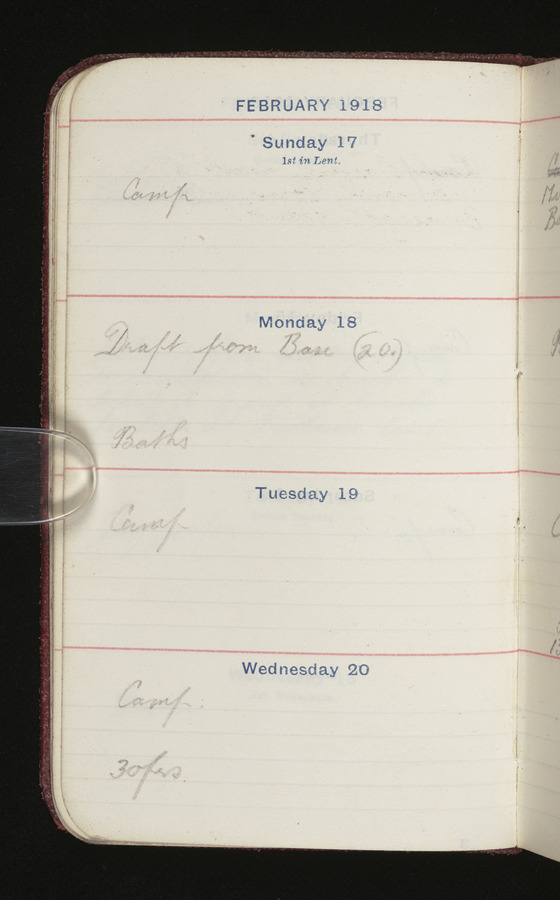 FEBRUARY 1918
Sunday 17
1st in Lent.
Camp
Monday 18
Draft from Base (20.)
Baths
Tuesday 19
Camp
Wednesday 20
Camp.